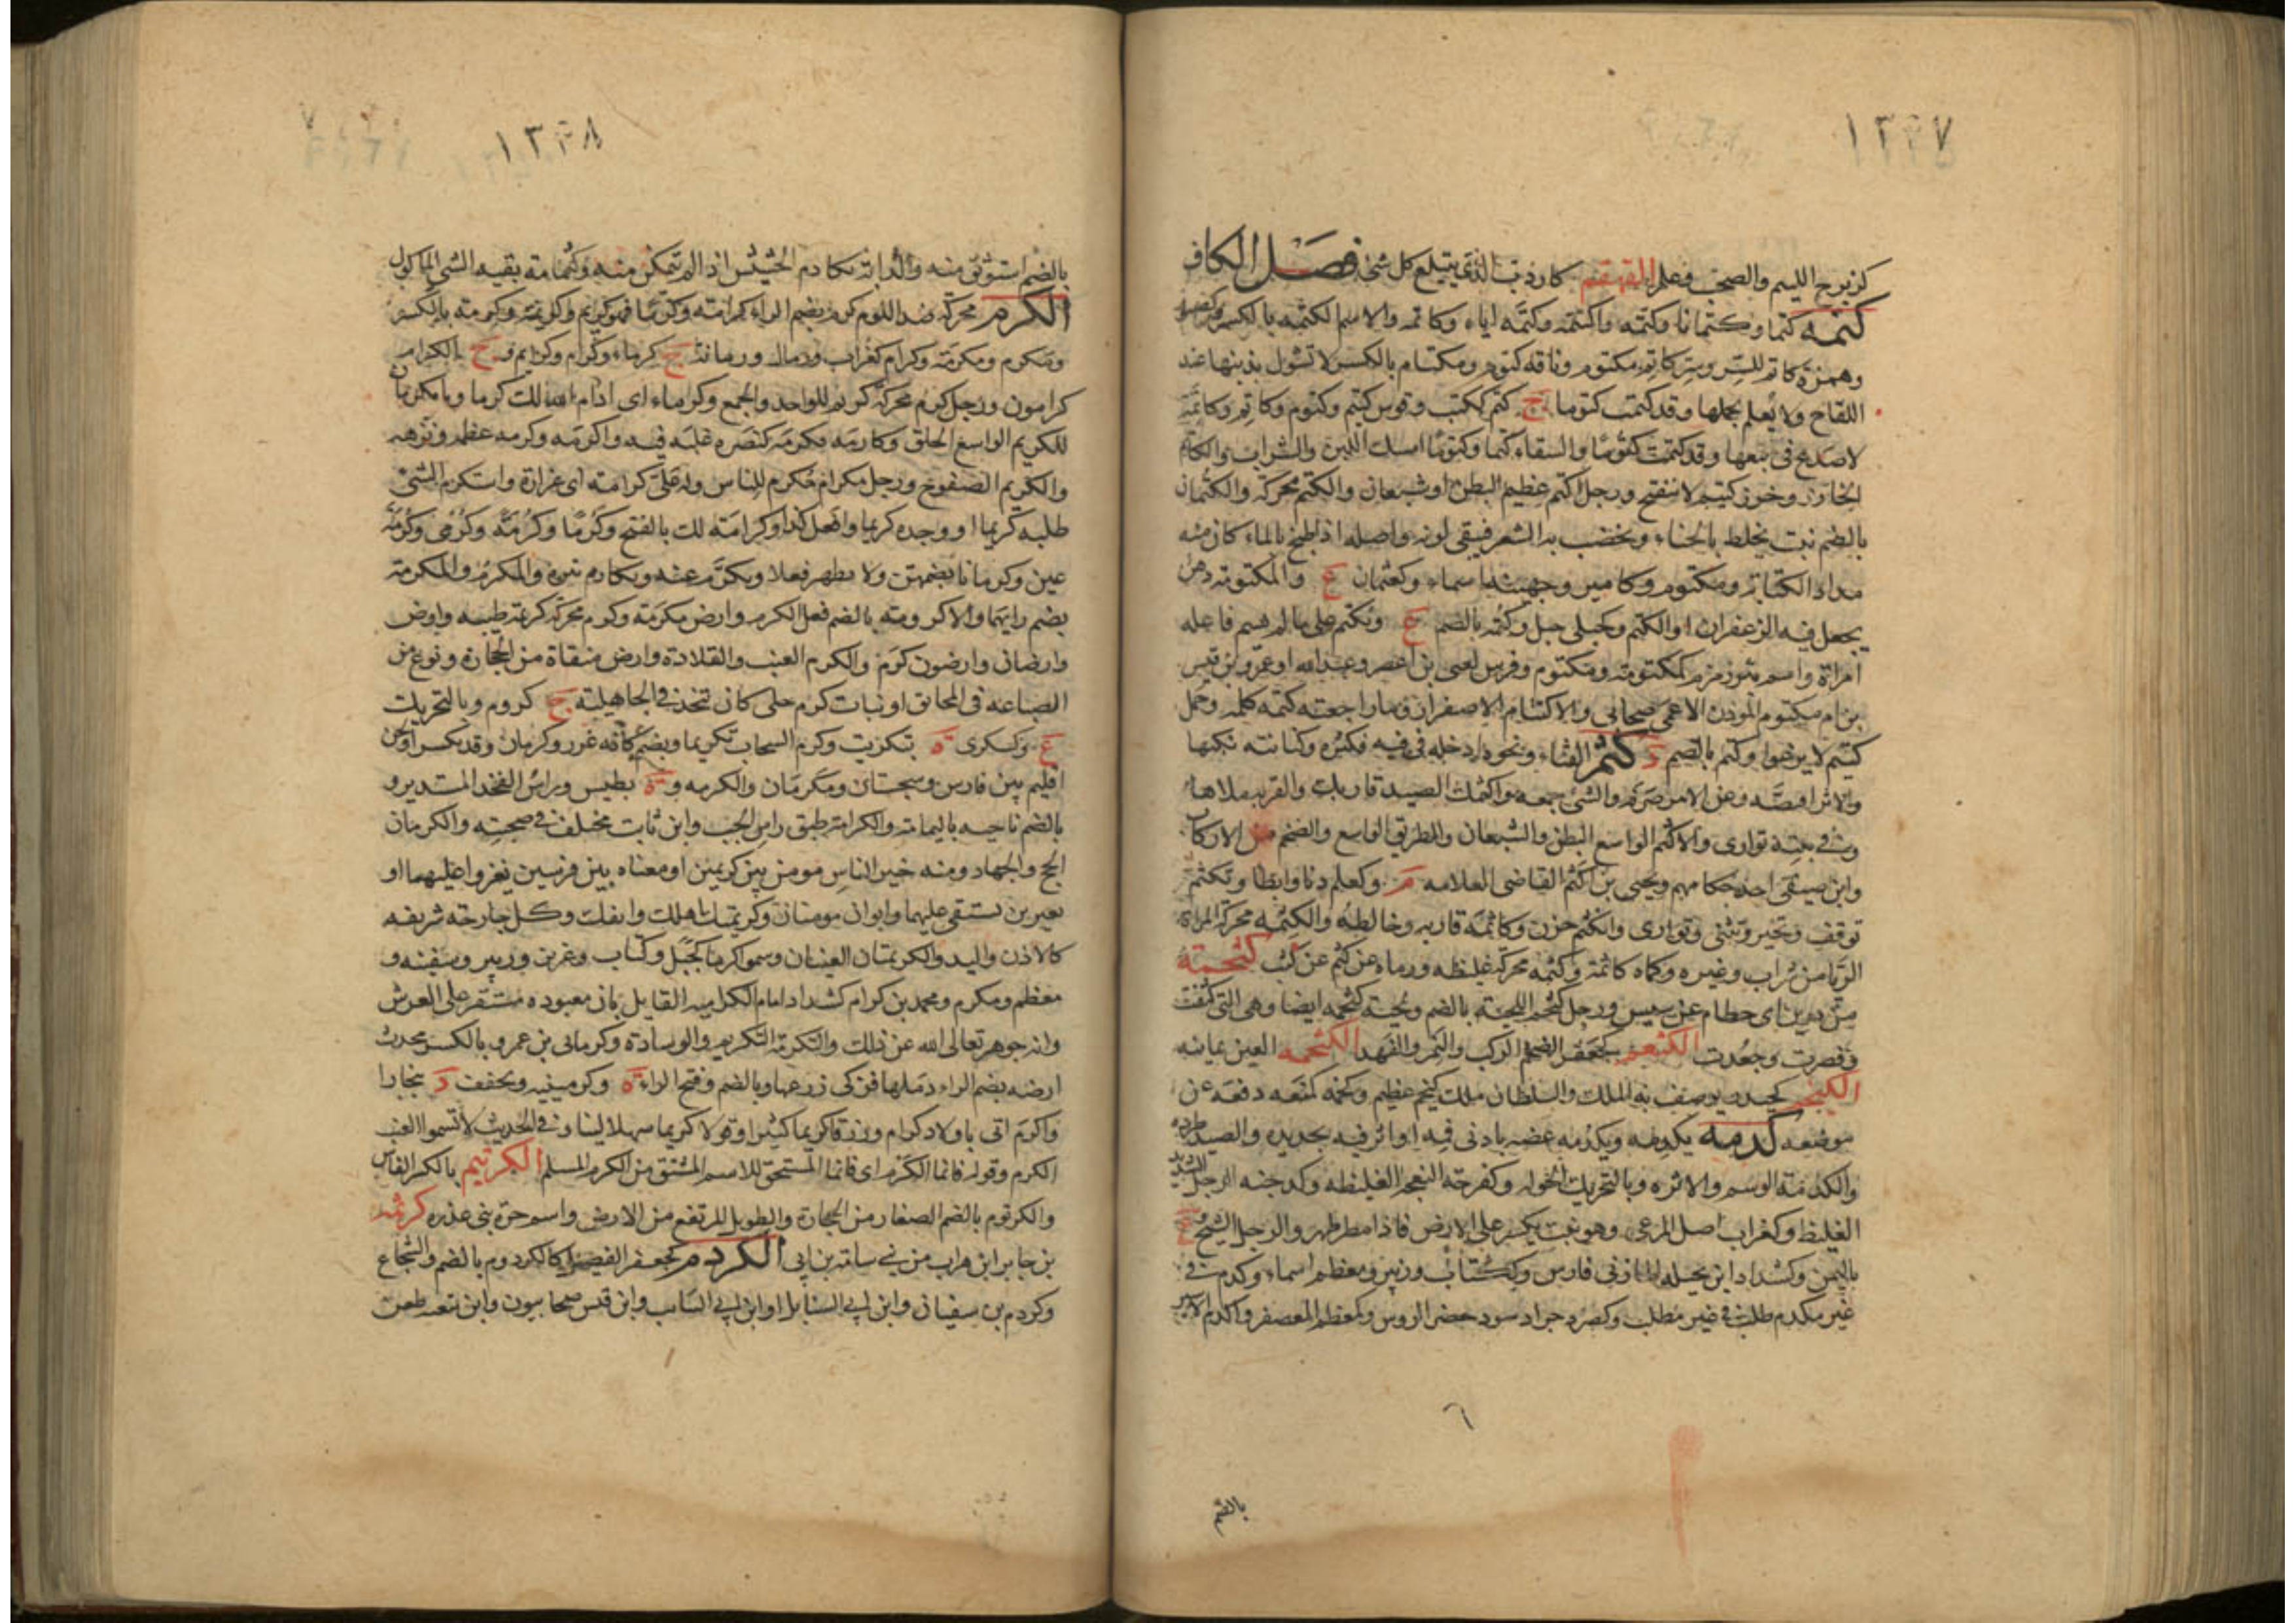 ١٣٢٧
كزبرج اللئيم والصخب وعلم القهقم كاردب الذي يبتلع كل شئ فصل الكاف
كتمه كتما وكتمانا وكتمه واكتتمه وكتمه اياه وكاتمه والاسم الكتمه بالكسر وكصبور
وهمزة كاتم للسر وسر كاتم مكتوم وناقه كتوم ومكتام بالكسر لا تشول بذنبها عند
اللقاح ولا يعلم بحملها وقد كتمت كتوما ج كتم ككتب وقوس كتيم وكتوم وكاتم وكاتمة
لا صدع فى نبعها وقد كتمت كتوما والسقاء كتما وكتوما امسك اللبن والشراب والكاتم
الخارز وخرز كتيم لا ينضح ورجل اكتم عظيم البطن او شبعان والكتم محركه والكتمان
بالضم نبت يخلط بالحناء ويخضب به الشعر فيبقى لونه واصله اذا طبخ بالماء كان منه
مداد الكتابة ومكتوم وكامير وجهينه اسماء وكعثمان ع والمكتومة دهن
يجعل فيه الزعفران او الكتم وكحبلى جبل وكتمه بالضم ع وتكتم على ما لم يسم فاعله
امراة واسم بئر زمزم كمكتومه ومكتوم وفرس لغنى بن اعصر وعبدالله او عمرو بن قيس
بن ام مكتوم المؤذن الاعمى صحابى والاكتتام الاصفرار وما راجعته كتمه كلمه وجمل
كتيم لا يرغوا وكتم بالضم د كثم القثاء ونحوه ادخله فى فيه فكسره وكنانته نكبها
والاثر اقتصه وعن الامر صرفه والشئ جمعه واكثمك الصيد قاربك والقربه ملاها
وفى بيته توارى والاكثم الواسع البطن والشبعان والطريق الواسع والضخم من الاركاب
وابن صيفى احد حكامهم ويحيى بن اكثم القاضى العلامه م وكعلم دنا وابطا وتكثم
توقف وتحير وتثنى وتوارى وانكثم حزن وكاثمه قاربه وخالطه والكثمه محركه المراة
الريا من شراب وغيره وكماة كاثمة وكثمه محركه غليظه ورماه عن كثم عن كثب كثحمة
من درين اى حطام عن يبيس ورجل كثحم اللحية بالضم ولحية كثحمه ايضا وهى التى كثفت
وقصرت وجعدت الكثعم كجعفر الضخم الركب والنمر والفهد الكثخمه العين يمانيه
الكيخم كحيدر يوصف به الملك والسلطان ملك كيخم عظيم وكخمه كمنعه دفعه عن
موضعه كدمه يكدمه ويكدمه عضه بادنى فيه او اثر فيه بحديده والصيد طرده
والكدمة الوسم والاثره وبالتحريك الحركه وكفرحة النعجه الغليظه وكدجنه الرجل الشديد
الغليظ وكغراب اصل المرعى وهو نبت يكسر على الارض فاذا مطر ظهر والرجل الشيخ ع
باليمن وكشداد ابن بحيله المازنى فارس وككتاب وزبير ومعظم اسماء وكدمت فى
غير مكدم طلبت فى غير مطلب وكصرد جراد سود خضر الروس وكمعظم المعصفر واكدم الاسير
بالضم
١٣٢٨
بالضم استوثق منه والدابة تكادم الحشيش اذا لم تتمكن منه وكدامة بقيه الشئ الماكول
الكرم محركة ضد اللوم كرم بضم الراء كرامة وكرما فهو كريم وكريمة وكرمة بالكسر
ومكرم ومكرمة وكرام كغراب ورمان ورمانة ج كرماء وكرام وكرايم و ج الكرام
كرامون ورجل كرم محركة كريم للواحد والجمع وكرماء اى ادام الله لك كرما ويا مكرمان
للكريم الواسع الخلق وكارمه فكرمه كنصره غلبه فيه واكرمه وكرمه عظمه ونزهه
والكريم الصفوح ورجل مكرام مكرم للناس وله على كرامة اى عزازة واستكرم الشئ
طلبه كريما او وجده كريما وافعل كذا وكرامة لك بالفتح وكرما وكرمة وكرمى وكرمة
عين وكرمانا بضمهن ولا يظهر فعلا وتكرم عنه وتكارم تنزه والمكرم والمكرمة
بضم رائهما والاكرومة بالضم فعل الكرم وارض مكرمة وكرم محركة كريمة طيبه وارض
وارضان وارضون كرم والكرم العنب والقلادة وارض منقاة من الحجارة ونوع من
الصياغه فى المخانق او نبات كرم حلى كان يتخذ فى الجاهلية ج كروم وبالتحريك
ع وكسكرى ة بتكريت وكرم السحاب تكريما وبضم كافه غزر وكرمان وقد يكسر او لحن
اقليم بين فارس وسجستان ومكرمان والكرمه و ة بطبس وراس الفخذ المستدير و
بالضم ناحيه باليمامه والكرامة طبق راس الحب وابن ثابت مختلف فى صحبته والكريمان
الحج والجهاد ومنه خير الناس مومن بين كريمين او معناه بين فرسين يغزوا عليهما او
بعيرين يستقى عليهما وابوان مومنان وكريمتك اهلك وانفك وكل جارحه شريفه
كالاذن واليد والكريمتان العينان وسموا كرما كجبل وكتاب وعزين وزبير وسفينه و
معظم ومكرم ومحمد بن كرام كشداد امام الكراميه القايل بان معبوده مستقر على العرش
وانه جوهر تعالى الله عن ذلك والتكرمة التكريم والوساده وكرمانى بن عمرو بالكسر محدث
ارضه بضم الراء دملها فزكى زرعها وبالضم وفتح الراء ة وكرمينيه وتخفف د ببخارا
واكرم اتى باولاد كرام ورزقا كريما كثيرا وقولا كريما سهلا لينا و فى الحديث لا تسموا العنب
الكرم وقوله فانما الكرم اى فانما المستحق للاسم المشتق من الكرم المسلم الكرتيم بالكسر الفاس
والكرتوم بالضم الصفا من الحجارة والطويل المرتفع من الارض واسم حرة بنى عذره كرثمه
بن جابر ابن هراب من بنى سامة بن لؤى الكردم كجعفر القصير كالكردوم بالضم والشجاع
وكردم بن سفيان وابن ابى السنابل او ابن ابى السائب وابن قيس صحابيون وابن شعبه طعن